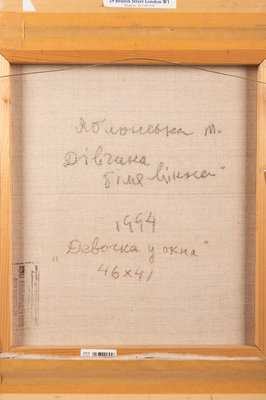 29 Bruton Street London W1
Яблонська Т.
Дівчина
біля вікна"
1994
„Девочка у окна"
46×41